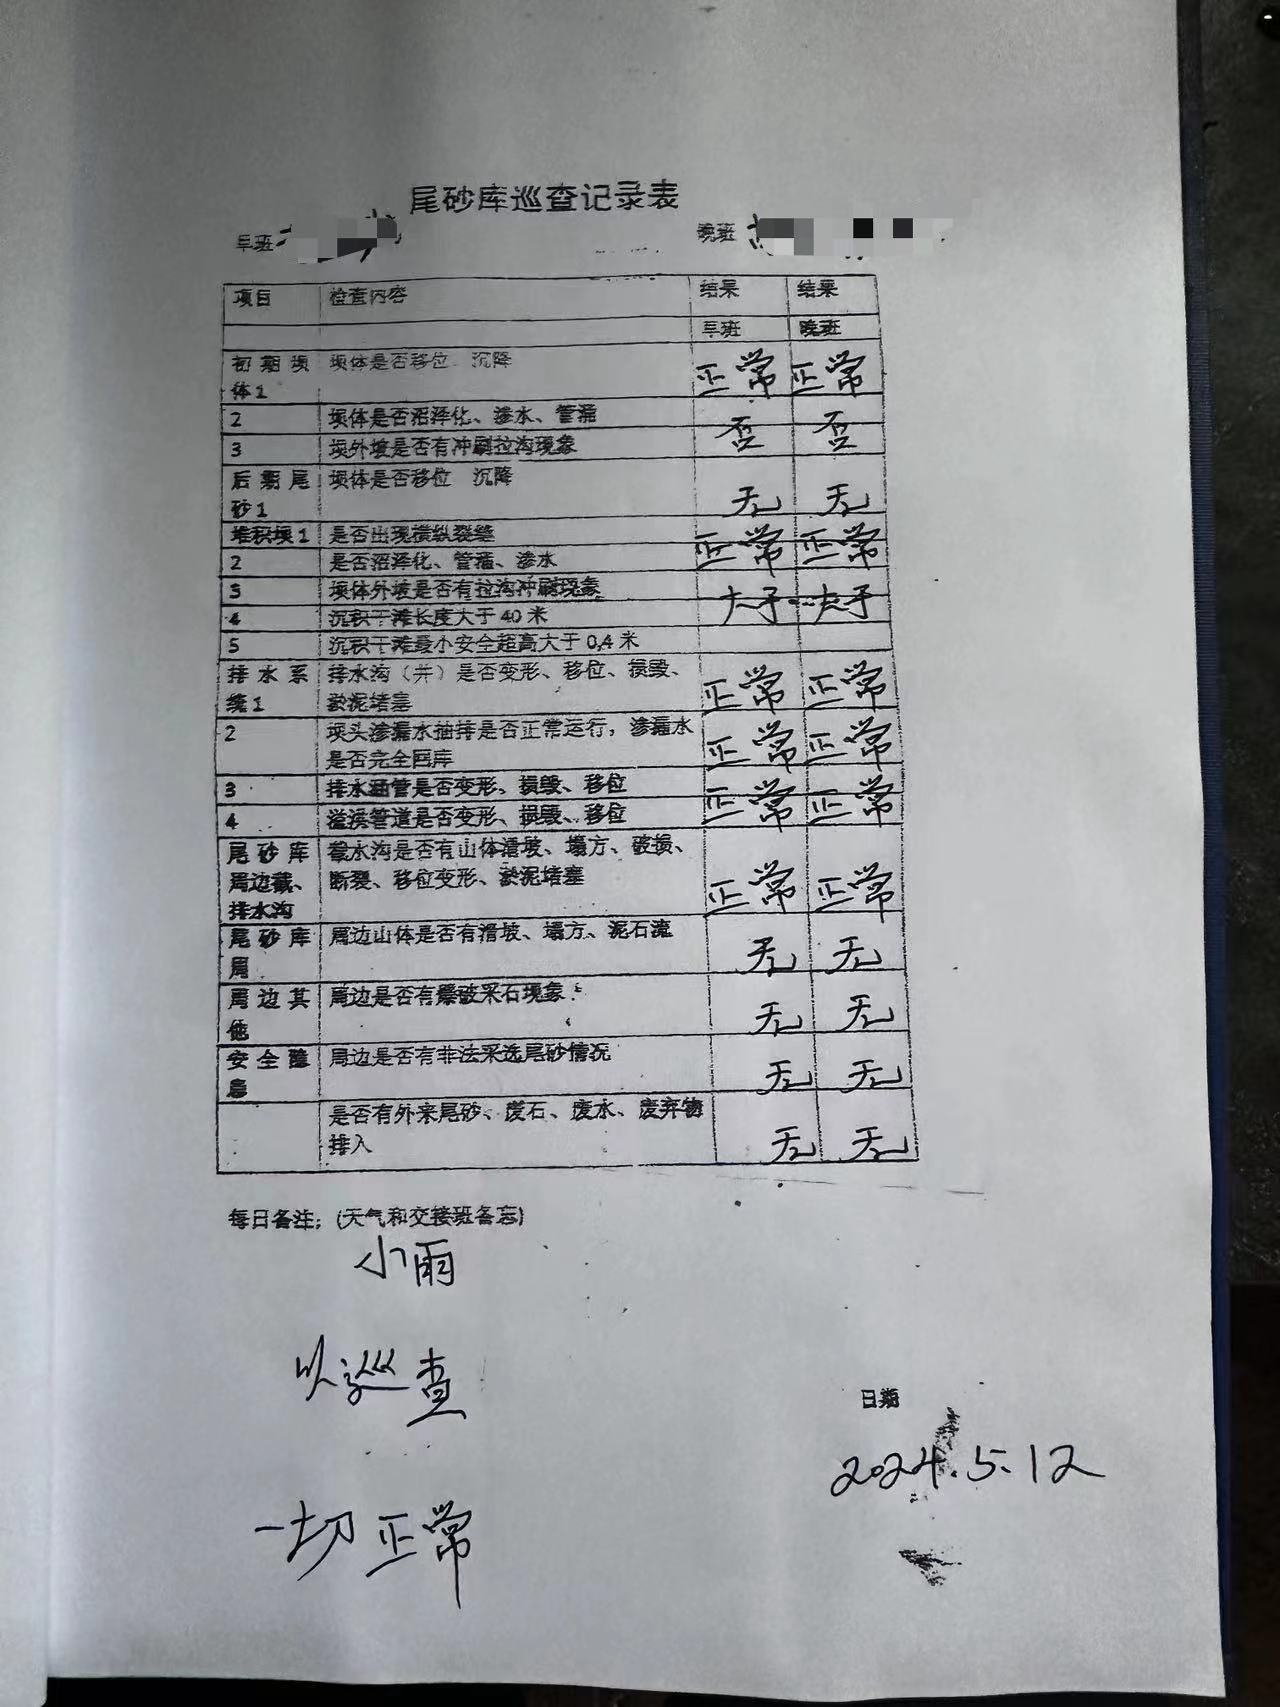 尾砂库巡查记录表
早班 晚班
项目 检查内容 结果 结果
早班 晚班
初期坝体1 坝体是否移位 沉降 正常 正常
2 坝体是否沼泽化、渗水、管涌
3 坝外坡是否有冲刷拉沟现象 否 否
后期尾砂1 坝体是否移位 沉降 无 无
堆积坝1 是否出现横纵裂缝
2 是否沼泽化、管涌、渗水 正常 正常
3 坝体外坡是否有拉沟冲刷现象
4 沉积干滩长度大于40米 大于 大于
5 沉积干滩最小安全超高大于0.4米
排水系统1 排水沟（井）是否变形、移位、损毁、
淤泥堵塞 正常 正常
2 坝头渗漏水抽排是否正常运行，渗漏水
是否完全回库 正常 正常
3 排水涵管是否变形、损毁、移位
4 溢洪管道是否变形、损毁、移位 正常 正常
尾砂库周边截、排水沟 截水沟是否有山体滑坡、塌方、破损、
断裂、移位变形、淤泥堵塞 正常 正常
尾砂库周 周边山体是否有滑坡、塌方、泥石流 无 无
周边其他 周边是否有爆破采石现象 无 无
安全隐患 周边是否有非法采选尾砂情况 无 无
是否有外来尾砂、废石、废水、废弃物
排入 无 无
每日备注；(天气和交接班备忘)
小雨
以巡查
日期
2024.5.12
一切正常